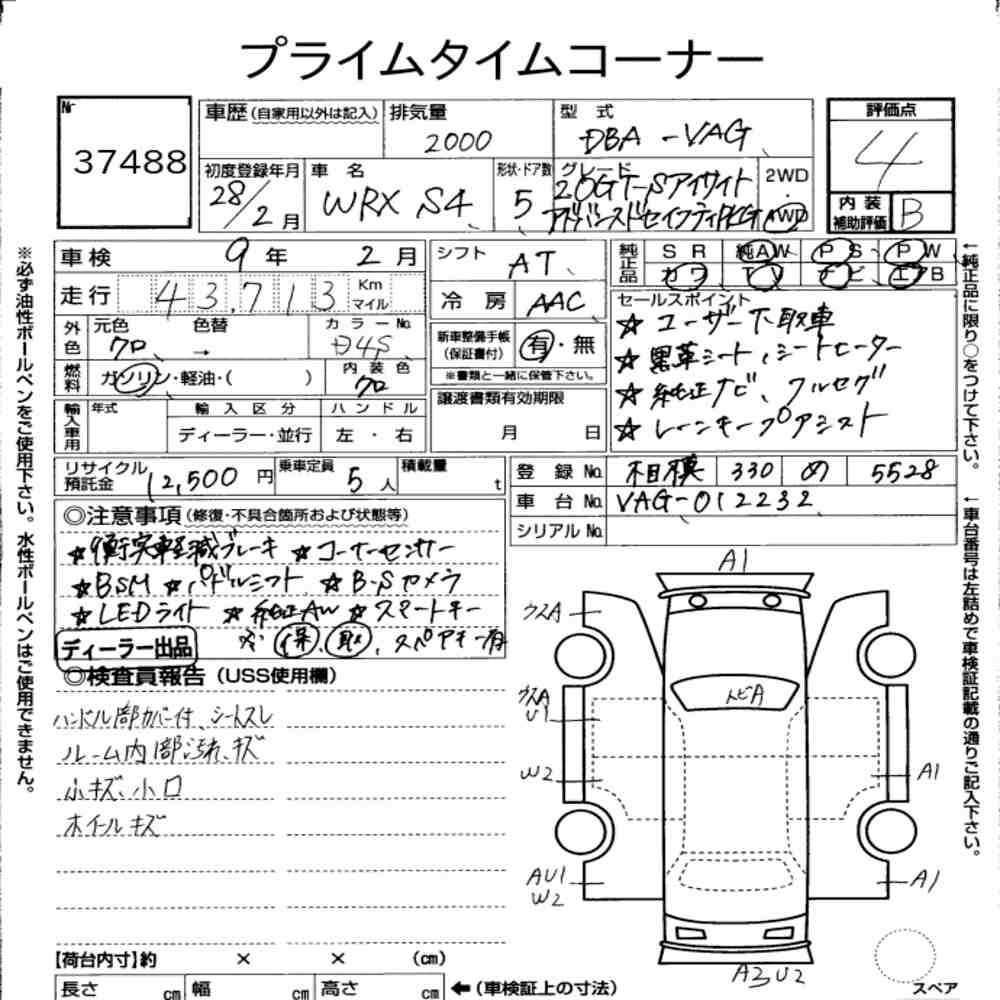 プライムタイムコーナー
№ 37488
車歴(自家用以外は記入) 排気量 2000 型式 DBA-VAG 評価点 4
初度登録年月 28/2月 車名 WRX S4 形状・ドア数 5 グレード 2.0GT-Sアイサイト 2WD
アドバンスドセイフティPKG AWD
内装補助評価 B
車検 9年 2月 シフト AT 純正品 SR 純AW PS PW
カワ TV ナビ エアB
走行 43,713 Km マイル 冷房 AAC
外色 元色 クロ 色替 → カラーNo. D4S
新車整備手帳(保証書付) 有・無
※書類と一緒に保管下さい。
燃料 ガソリン・軽油・( ) 内装色 クロ
譲渡書類有効期限 月 日
輸入車用 年式 輸入区分 ハンドル
ディーラー・並行 左・右
セールスポイント
☆ユーザー下取車
☆黒革シート、シートヒーター
☆純正ナビ、フルセグ
☆レーンキープアシスト
リサイクル預託金 12,500円 乗車定員 5人 積載量 t
登録No. 相模 330 め 5528
車台No. VAG-012232
シリアルNo.
◎注意事項(修復・不具合箇所および状態等)
☆衝突軽減ブレーキ ☆コーナーセンサー
☆BSM ☆パドルシフト ☆B・Sカメラ
☆LEDライト ☆純正AW ☆スマートキー
ディーラー出品 ※保、取、スペアキー有
◎検査員報告(USS使用欄)
ハンドル部カバー付、シートスレ
ルーム内部汚れ、キズ
小キズ、小凹
ホイールキズ
A1
ウスA
ウスA
U1
トビA
W2
A1
AU1
W2
A1
A3 U2
スペア
【荷台内寸】約 × × (cm)
長さ cm 幅 cm 高さ cm ←(車検証上の寸法)
※必ず油性ボールペンをご使用下さい。水性ボールペンはご使用できません。
←純正品に限り○をつけて下さい。
←車台番号は左詰めで車検証記載の通りご記入下さい。